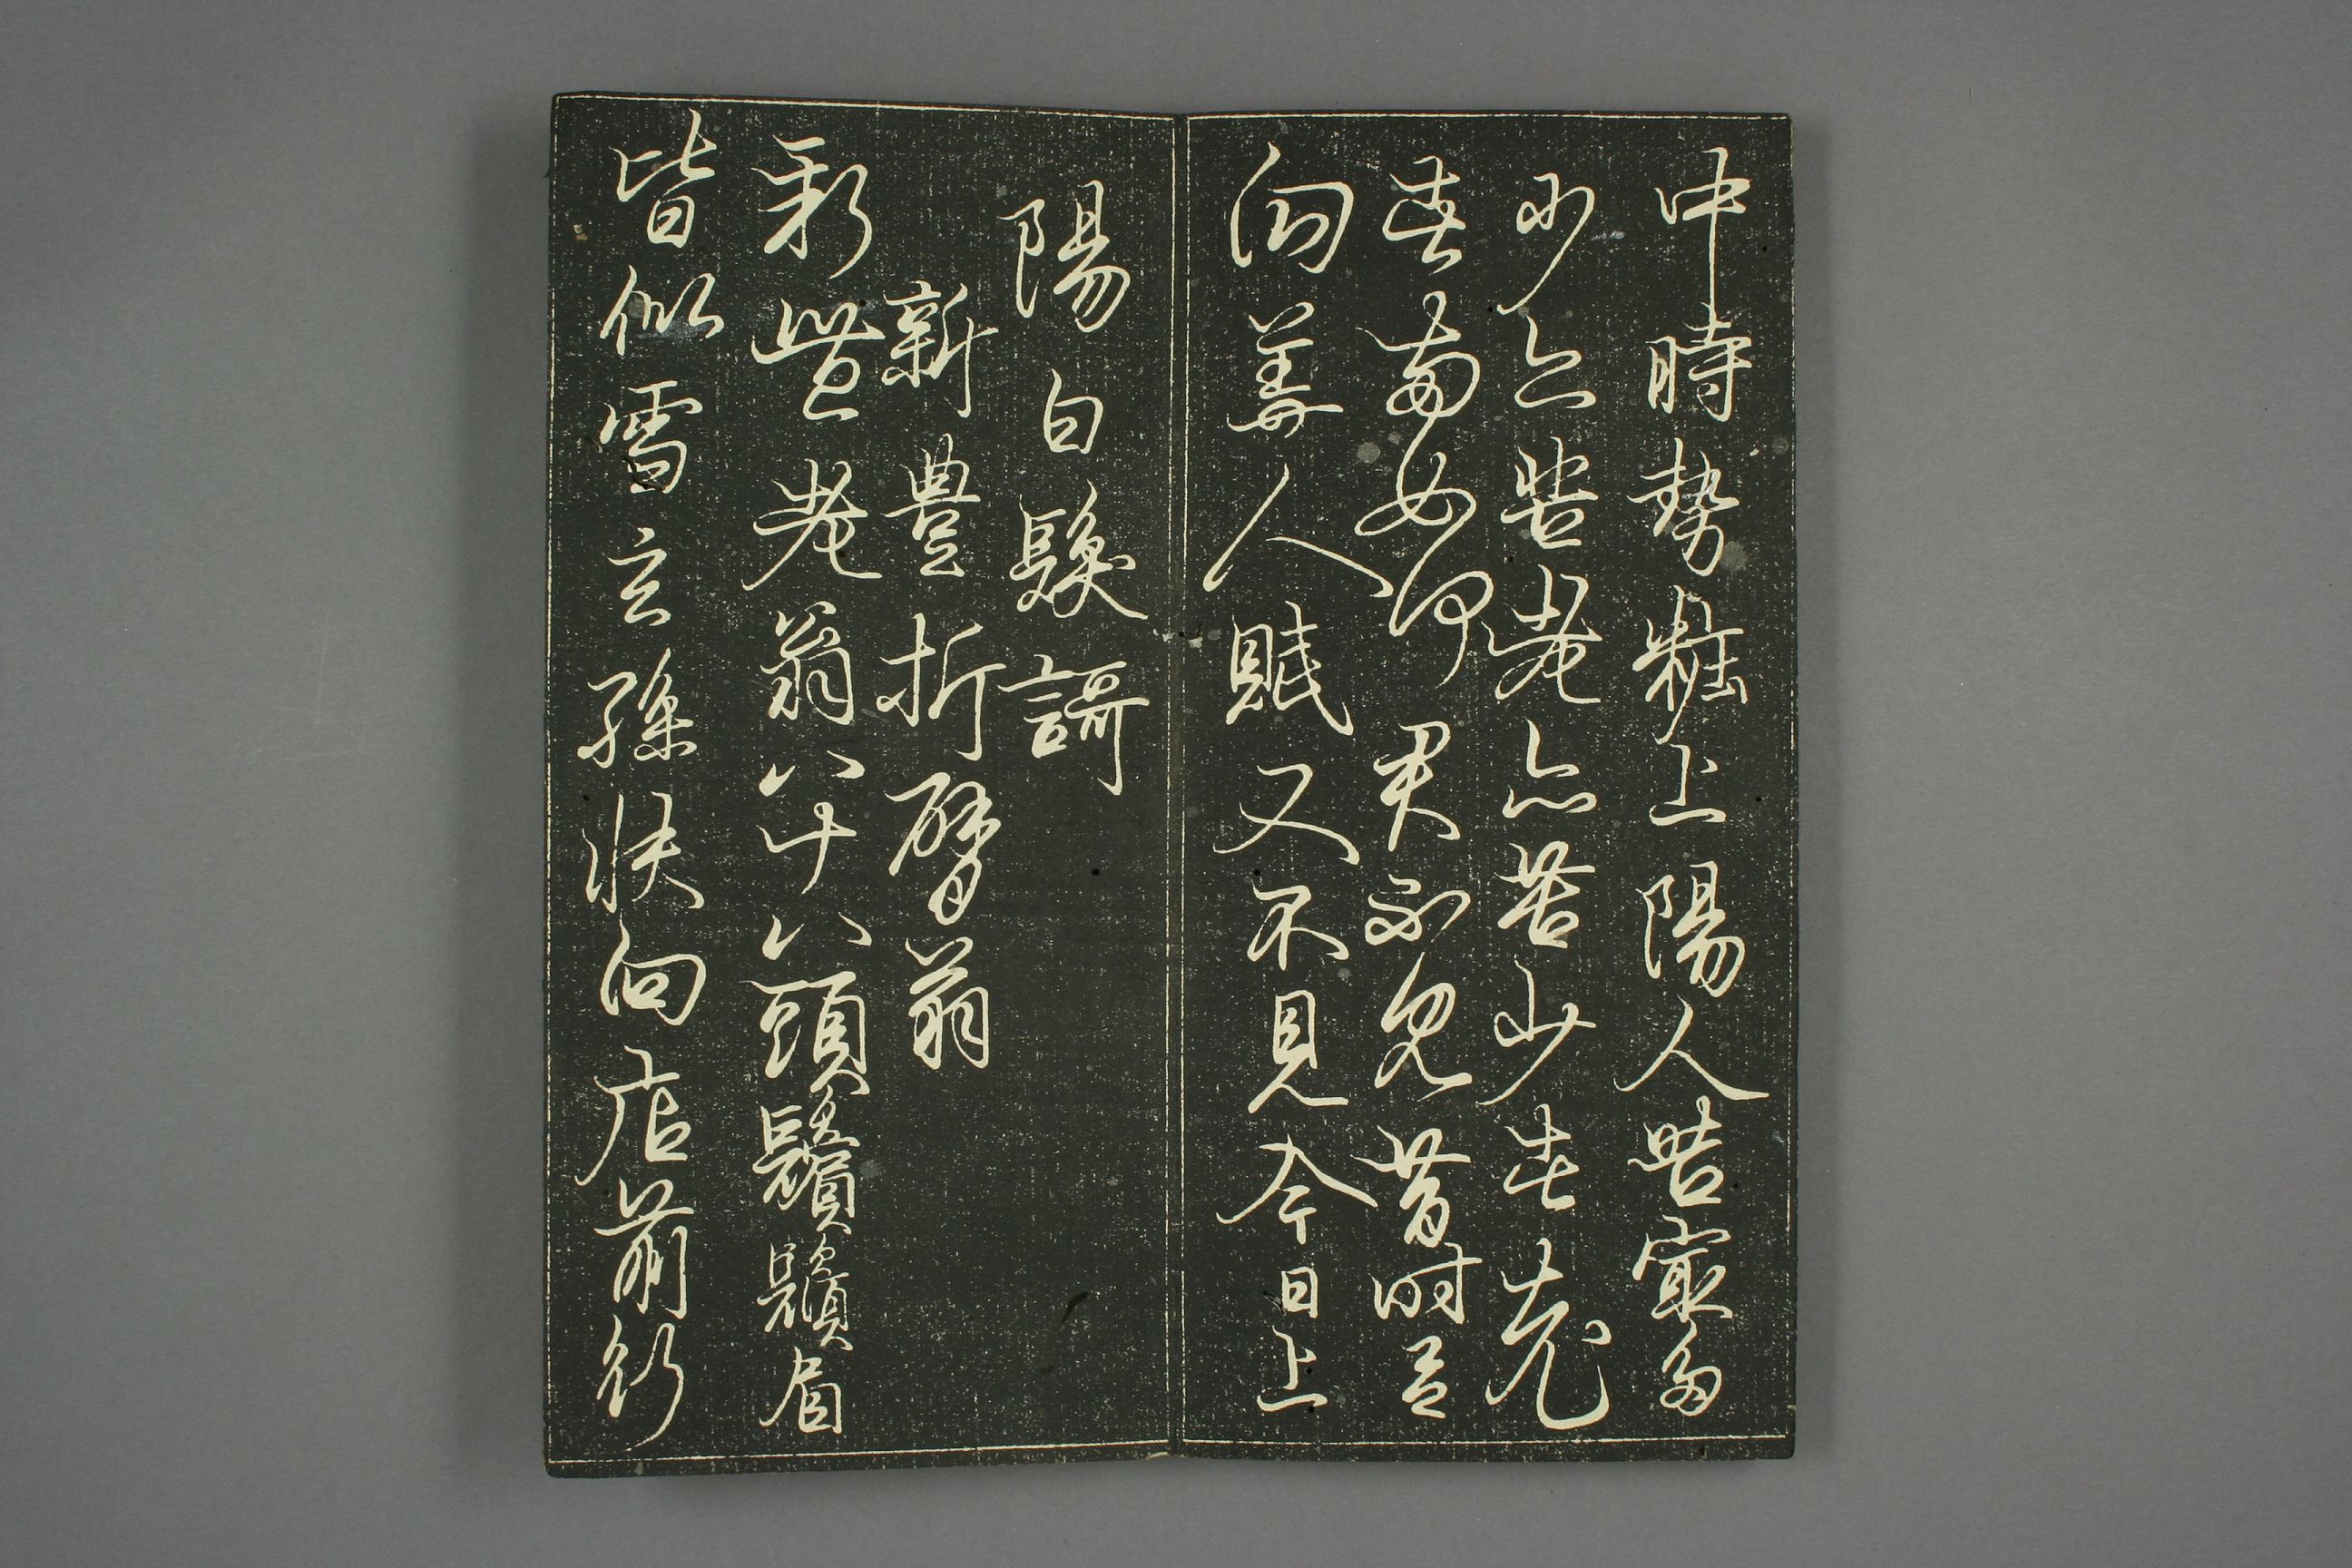 中時勢粧上陽人苦最多
少亦苦老亦苦少苦老
苦兩如何君不見昔時呂
向美人賦又不見今日上
陽白髮謌
新豊折臂翁
新豊老翁八十八頭鬢鬚眉
皆似雪玄孫扶向店前行